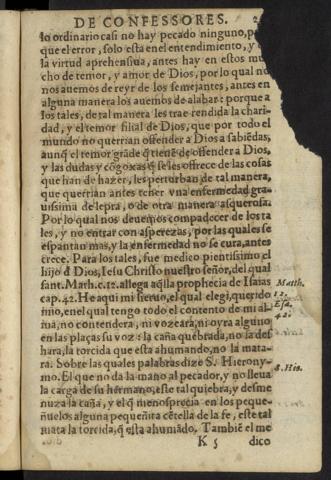 DE CONFESSORES.
lo ordinario casi no hay pecado ninguno, p
que el error, solo esta en el entendimiento, y
la virtud aprehensiua, antes hay en estos mu
cho de temor, y amor de Dios, por lo qual no
nos auemos de reyr de los semejantes, antes en
alguna manera los auemos de alabar: porque a
los tales, de tal manera les trae rendida la chari-
dad, y el temor filial de Dios, que por todo el
mundo no querrian offender a Dios a sabiẽdas,
aunq̃ el temor grãde q̃ tienẽ de offender a Dios,
y las dudas y cõgoxas q̃ se les offrece de las cosas
que han de hazer, les perturban de tal manera,
que querrian antes tener vna enfermedad gra-
uissima de lepra, o de otra manera asquerosa.
Por lo qual nos deuemos compadecer de los ta
les, y no entrar con asperezas, por las quales se
espantan mas, y la enfermedad no se cura, antes
crece. Para los tales, fue medico pientissimo el
hijo đ Dios, Iesu Christo nuestro señor, del qual
sant. Math. c. 12. allega aq̃lla prophecia de Isaias
cap. 42. He aqui mi sieruo, el qual elegi, querido
mio, en el qual tengo todo el contento de mi al-
ma, no contendera, ni vozeara, ni oyra alguno
en las plaças su voz: la caña quebrada, no la des
hara, la torcida que esta ahumando, no la mata-
ra. Sobre las quales palabras dize S. Hierony-
mo. El que no da la mano al pecador, y no lleua
la carga de su hermano, este tal quiebra, y desme
nuza la caña, y el q̃ menosprecia en los peque-
ñuelos alguna pequeñita cẽtella de la fe, este tal
mata la torcida, q̃ esta ahumãdo. Tambiẽ el me
K 5 dico
Matth.
12.
Esa.
42.
S. Hie.